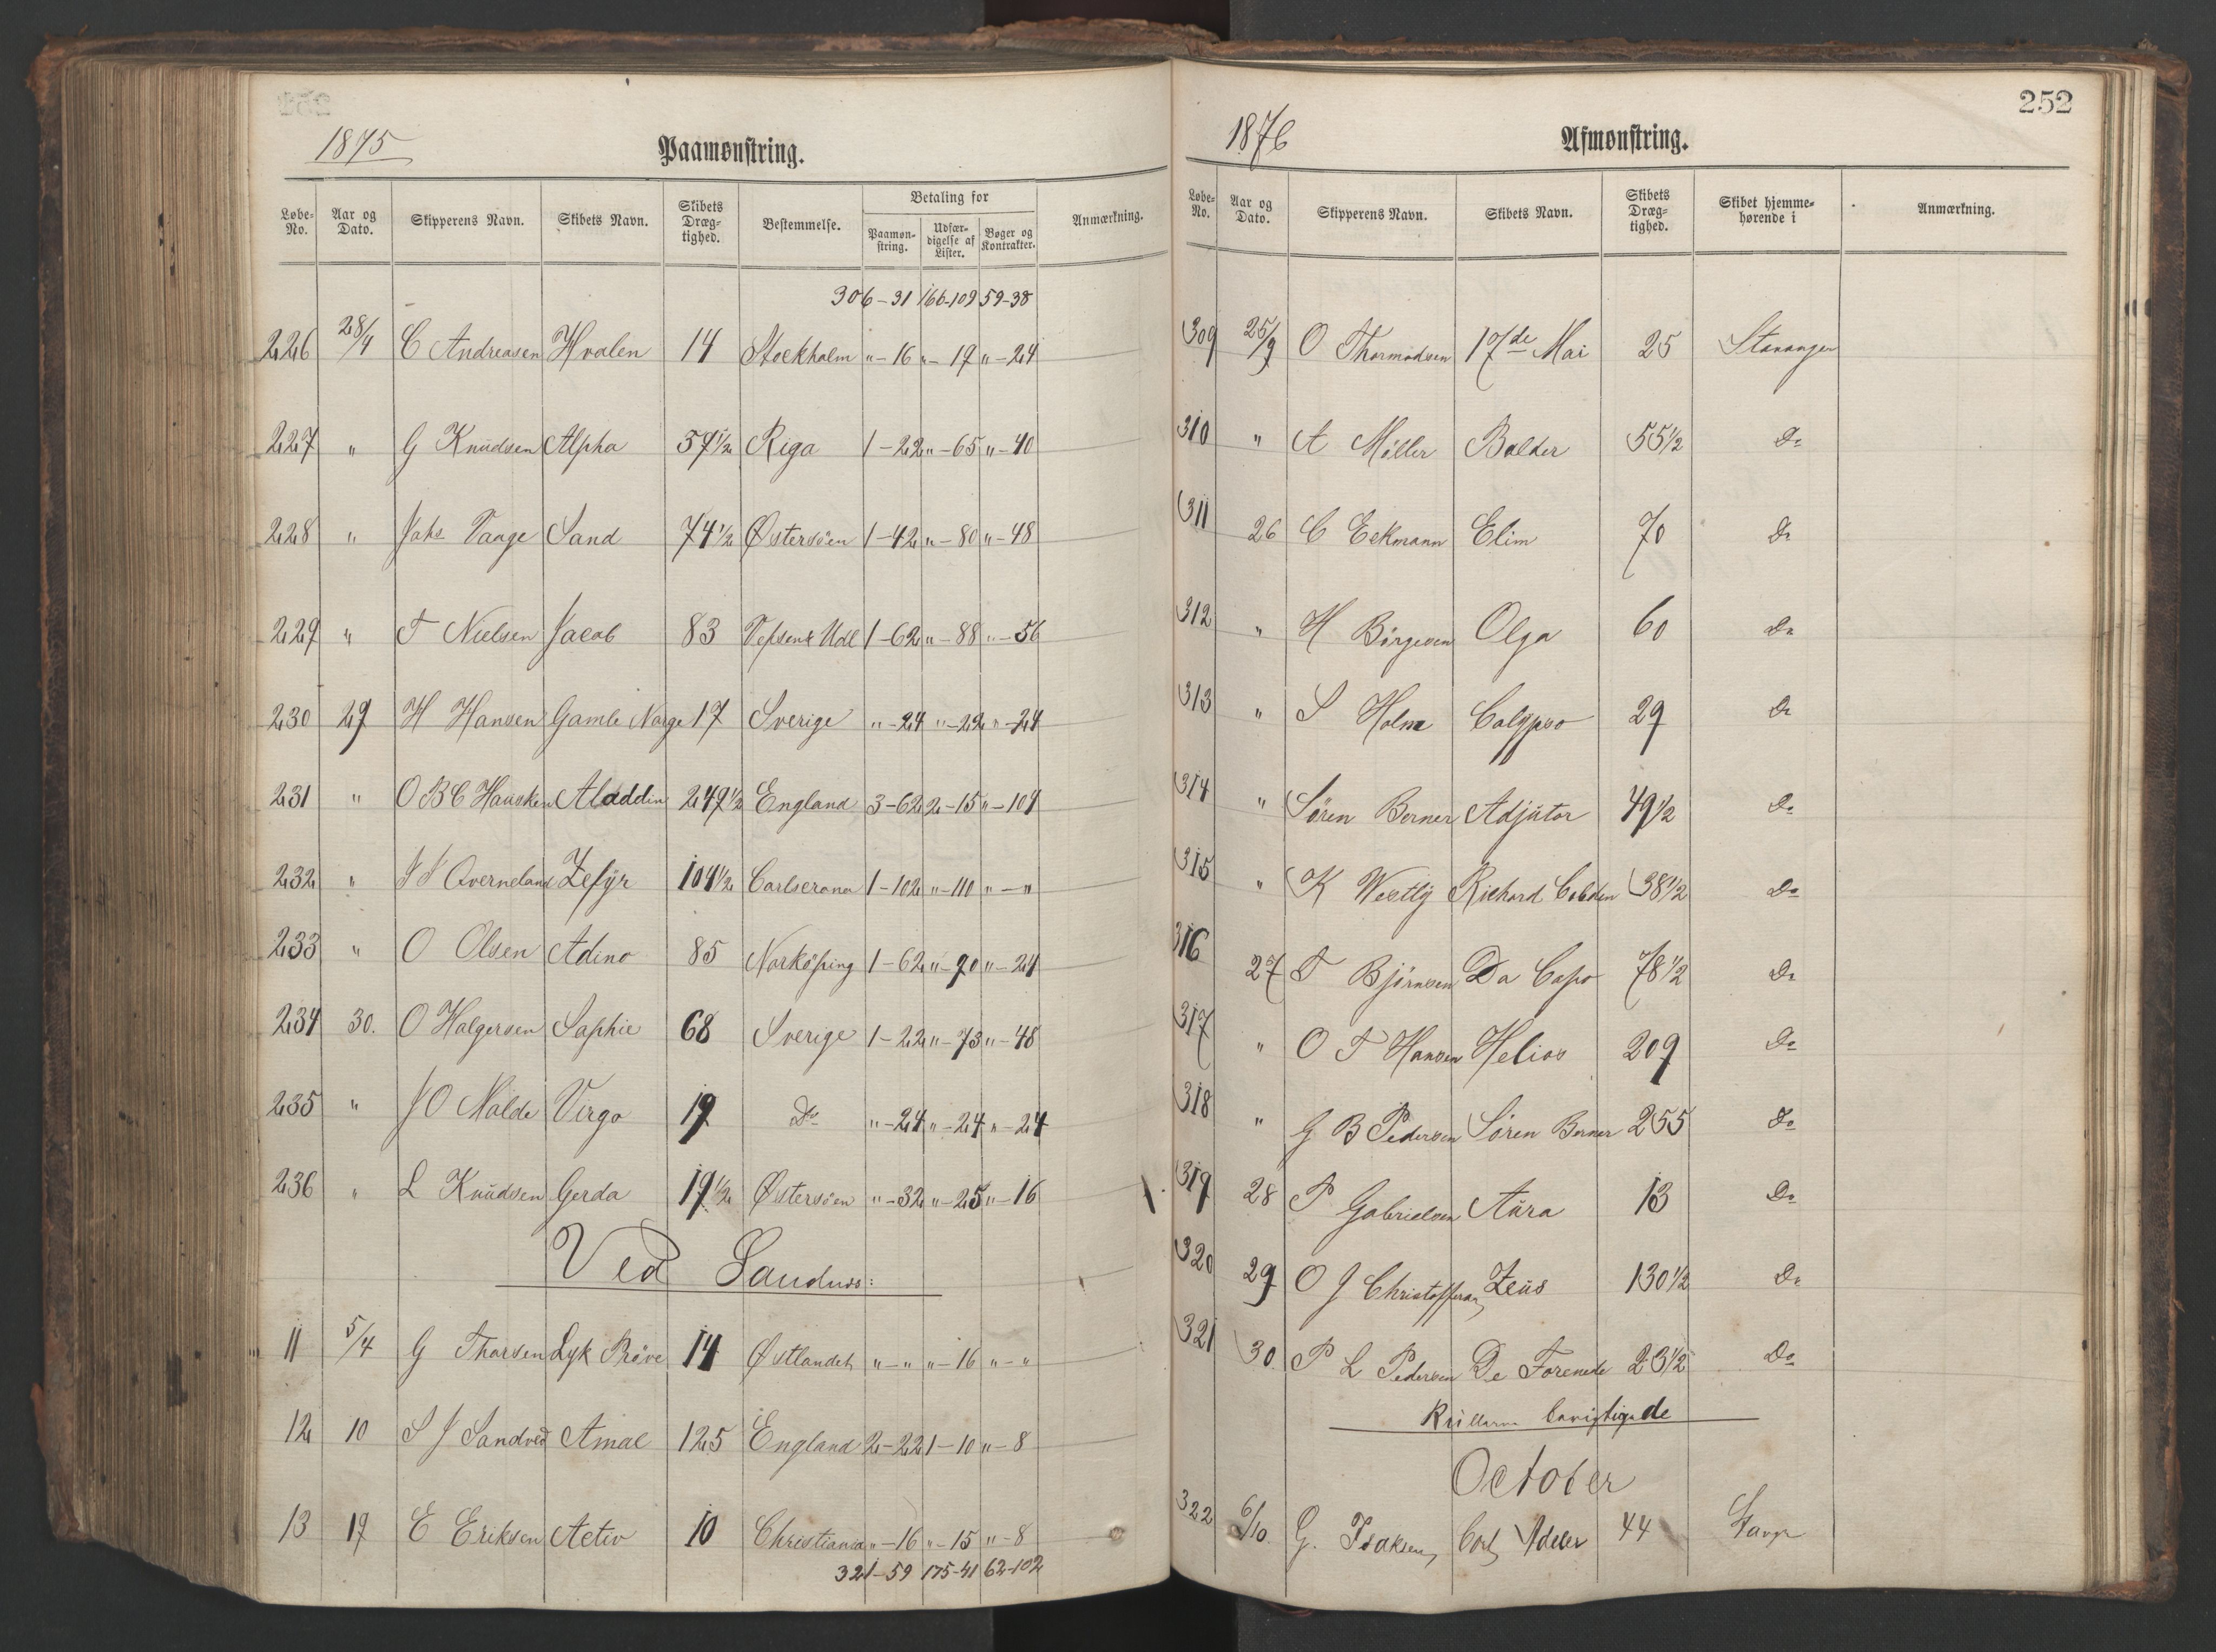 1875
Paamønstring.
Løbe-No. | Aar og Dato. | Skipperens Navn. | Skibets Navn. | Skibets Dræg-tighed. | Bestemmelse. | Betaling for | Paamøn-string. | Udfær-digelse af Lister. | Bøger og Kontrakter. | Anmærkning.
306-31 | 166-109 | 59-38
226 | 28/4 | C Andreasen | Hvalen | 14 | Stockholm | "-16 | "-19 | "-24
227 | " | G Knudsen | Alpha | 57 1/2 | Riga | 1-22 | "-65 | "-40
228 | " | Jahs Vaage | Sand | 74 1/2 | Østersöen | 1-42 | "-80 | "-48
229 | " | T Nielsen | Jacob | 83 | 1-62 | "-88 | "-56
230 | 29 | H Hansen | Gamle Norge | 17 | Sverige | "-24 | "-22 | "-24
231 | " | O B C Hausken | Aladdin | 249 1/2 | England | 3-62 | 2-15 | "-104
232 | " | Qverneland | Zefyr | 104 1/2 | Carlscrona | 1-102 | "-110 | "-"
233 | " | O Olsen | Adino | 85 | Norköping | 1-62 | "-90 | "-24
234 | 30. | O Holgersen | Sophie | 68 | Sverige | 1-22 | "-73 | "-48
235 | " | J O Nålde | Virgo | 19 | Do | "-24 | "-24 | "-24
236 | " | L Knudsen | Gerda | 19 1/2 | Østersöen | "-32 | "-25 | "-16
Ved Sandnes:
11 | 5/4 | G Thorsen | Lyk Pröve | 14 | Østlandet | "-" | "-16 | "-"
12 | 10 | S J Sandved | Amae | 125 | England | 2-22 | 1-10 | "-8
13 | 19 | E Eriksen | Activ | 10 | Christiania | "-16 | "-15 | "-8
321-59 | 175-41 | 62-102
252
1876
Afmønstring.
Løbe-No. | Aar og Dato. | Skipperens Navn. | Skibets Navn. | Skibets Dræg-tighed. | Skibet hjemme-hørende i | Anmærkning.
309 | 25/9 | O Thormodsen | 17de Mai | 25 | Stavanger
310 | " | A Möller | Balder | 55 1/2 | Do
311 | 26 | C Eckmann | Elim | 70 | Do
312 | " | H Börgesen | Olga | 60 | Do
313 | " | S Holm | Calypso | 29 | Do
314 | " | Sören Berner | Adjutor | 49 1/2 | Do
315 | " | K Westly | Richard Cobden | 38 1/2 | Do
316 | 27 | T Björnsen | Da Capo | 78 1/2 | Do
317 | " | O T Hansen | Helios | 209 | Do
318 | " | G B Pedersen | Sören Berner | 255 | Do
319 | 28 | P Gabrielsen | Aura | 13 | Do
320 | 29 | O J Christoffersen | Zeus | 130 1/2 | Do
321 | 30 | P L Pedersen | De Forenede | 23 1/2 | Do
October
322 | 6/10 | G. Isaksen | Cort Adeler | 44 | Stavgr